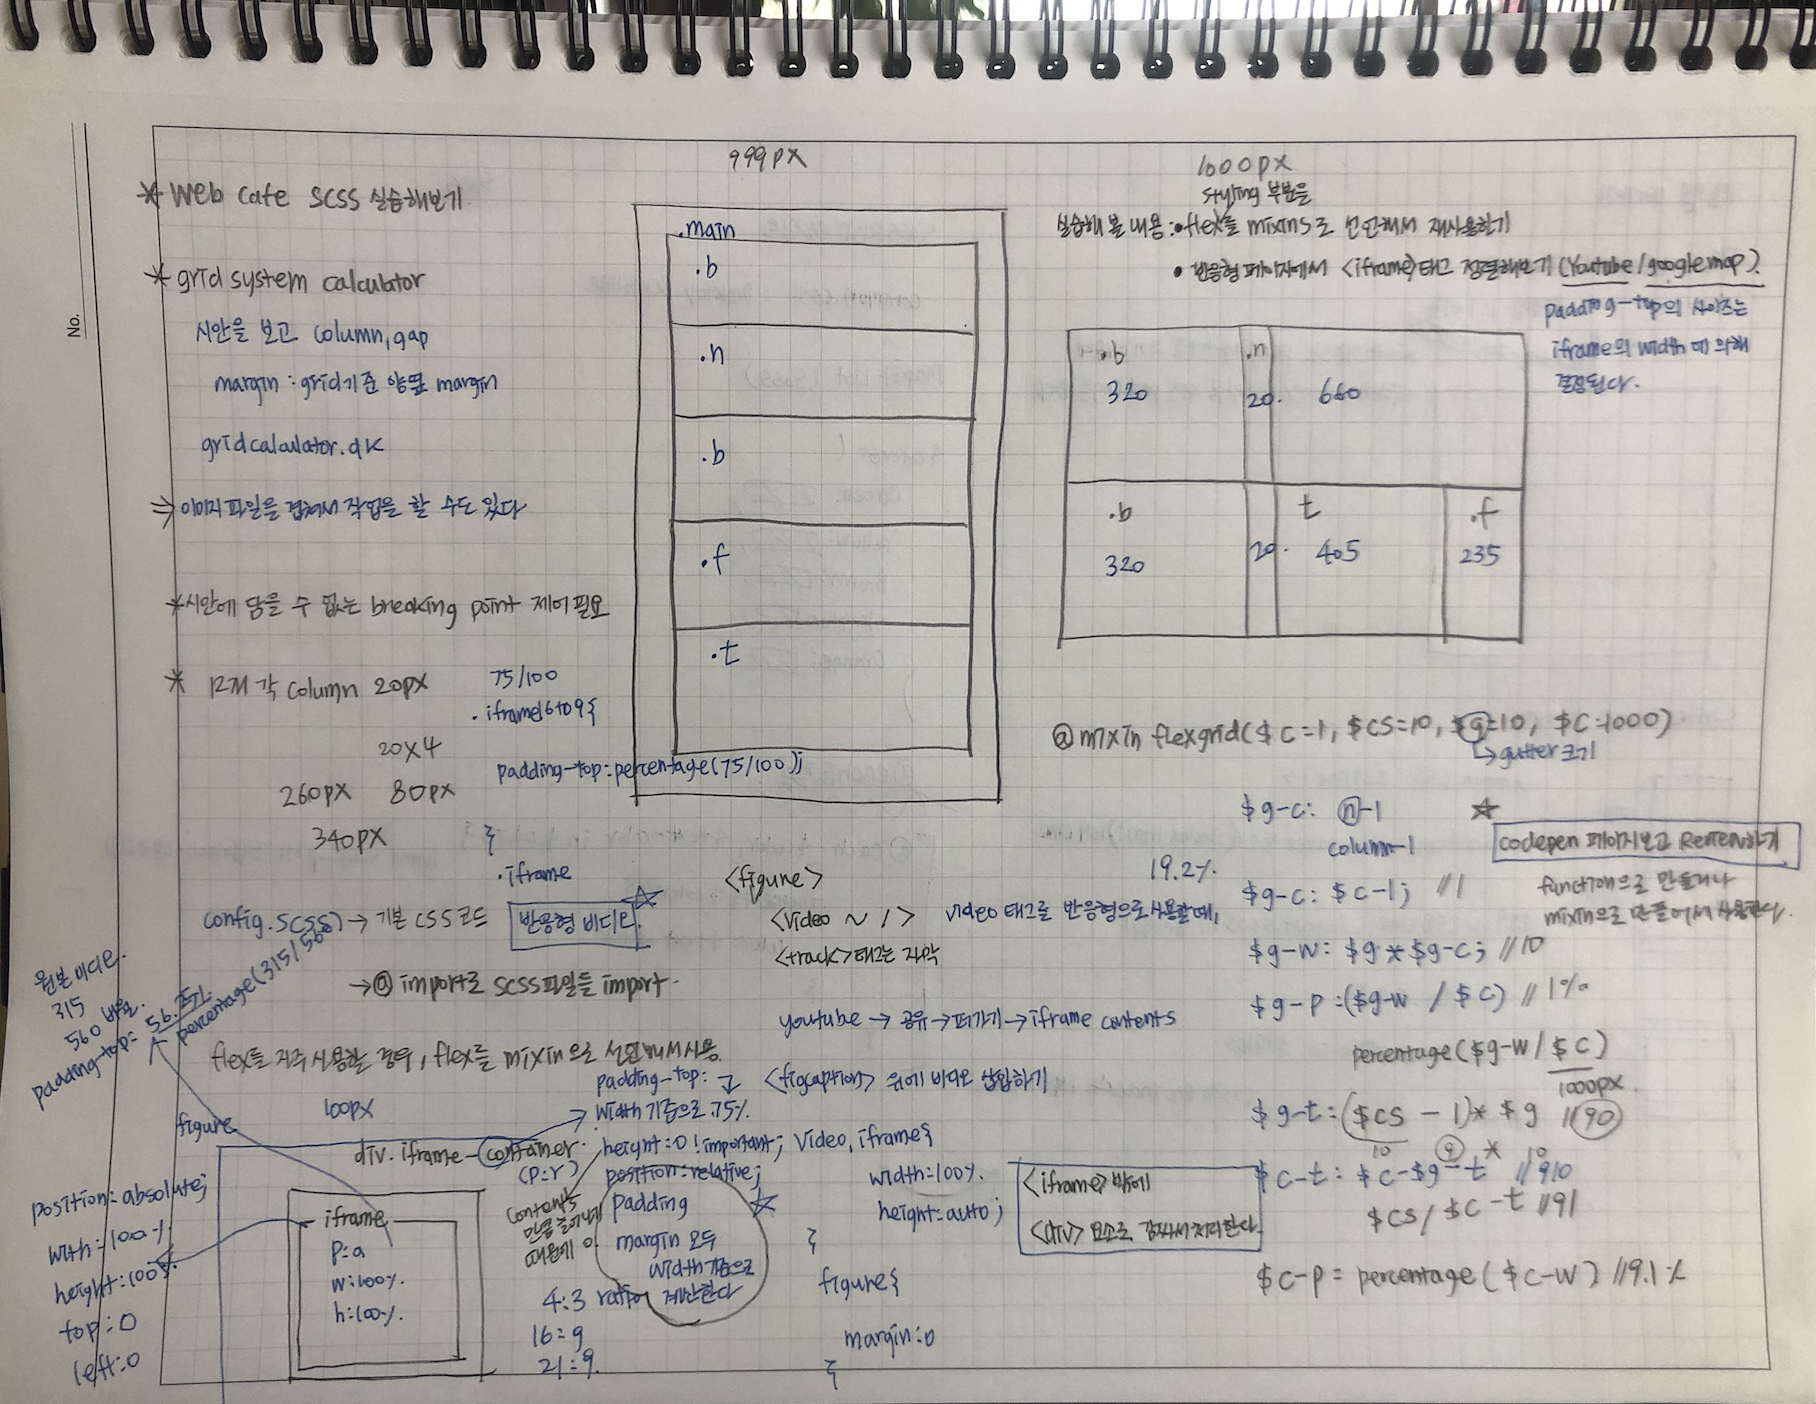 No.
* Web cafe SCSS 실습해보기
* grid system calculator
시안을 보고 column, gap
margin : grid 기준 양옆 margin
gridcalculator.dk
⇒ 이미지 파일을 겹쳐서 작업을 할 수도 있다
* 시안에 담을 수 없는 breaking point 제어 필요
* 12개 각 column 20px
20x4
260px 80px
340px
75/100
.iframe16to9{
padding-top:percentage(75/100);
}
.iframe
config.scss) → 기본 CSS 코드
반응형 비디오
→ @ import로 scss파일들 import.
flex를 자주 사용할 경우, flex를 mixin으로 선언해서 사용.
999px
.main
.b
.n
.b
.f
.t
1000px
styling 부분을
실습해 볼 내용 : • flex를 mixins로 선언해서 재사용하기
• 반응형 페이지에서 <iframe>태그 정렬해보기 (Youtube/google map).
padding-top의 사이즈는
iframe의 width에 의해
결정된다.
.b .n
320 20. 660
.b t .f
320 20. 405 235
@mixin flexgrid($c=1, $cs=10, $g=10, $c=1000)
↳ gutter 크기
$g-c: n-1
column-1
codepen 페이지보고 하기
$g-c: $c-1; //1
function으로 만들거나
mixin으로 만들어서 사용한다.
$g-w: $g*$g-c; //10
$g-p:($g-w / $c) // 1%
percentage($g-w/$c)
1000px
$g-t:($cs - 1)* $g //90
10 9 * 10
$c-t: $c-$g-t //910
$cs/$c-t //91
$c-p = percentage($c-w) //9.1%
19.2%.
<figure>
<video ~ / > video 태그를 반응형으로 사용할 때,
<track>태그는 자막
youtube → 공유 → 퍼가기 → iframe contents
<figcaption> 위에 비디오 삽입하기
padding-top:
width 기준으로 75%.
height:0 !important;
position:relative;
padding
margin 모두
width 기준으로
계산한다
video, iframe{
width:100%.
height:auto;
}
figure{
margin:0
}
<iframe> 밖에
<div> 요소로 감싸서 처리한다.
원본 비디오.
315
560 비율.
padding-top: 56.25%.
percentage(315/560)
figure
100px
div.iframe-container.
(p:r)
contents
때문에 0.
4:3 ratio
16:9
21:9.
iframe
p:a
w:100%.
h:100%.
position:absolute;
with:100%
height:100%.
top:0
left:0